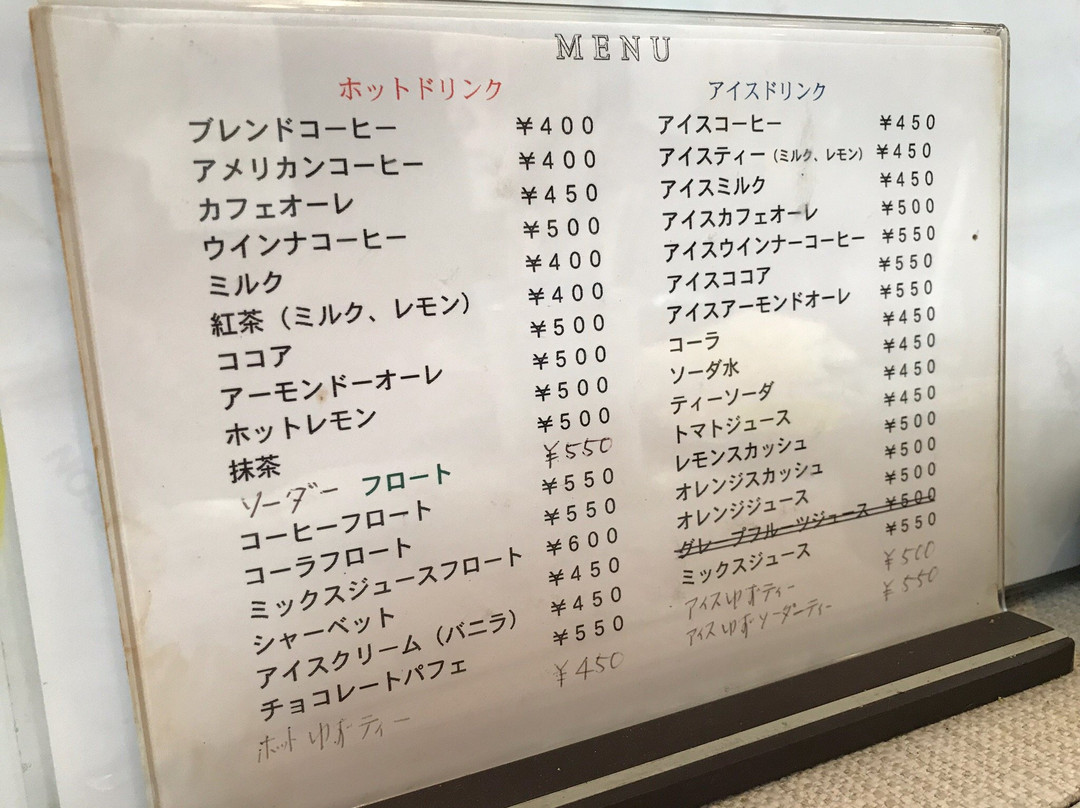 MENU
ホットドリンク
ブレンドコーヒー ¥400
アメリカンコーヒー ¥400
カフェオーレ ¥450
ウインナコーヒー ¥500
ミルク ¥400
紅茶（ミルク、レモン） ¥400
ココア ¥500
アーモンドーオーレ ¥500
ホットレモン ¥500
抹茶 ¥500
ソーダー フロート ¥550
コーヒーフロート ¥550
コーラフロート ¥550
ミックスジュースフロート ¥600
シャーベット ¥450
アイスクリーム（バニラ） ¥450
チョコレートパフェ ¥550
ホットゆずティー ¥450
アイスドリンク
アイスコーヒー ¥450
アイスティー（ミルク、レモン） ¥450
アイスミルク ¥450
アイスカフェオーレ ¥500
アイスウインナーコーヒー ¥550
アイスココア ¥550
アイスアーモンドオーレ ¥550
コーラ ¥450
ソーダ水 ¥450
ティーソーダ ¥450
トマトジュース ¥450
レモンスカッシュ ¥500
オレンジスカッシュ ¥500
オレンジジュース ¥500
グレープフルーツジュース ¥500
ミックスジュース ¥550
アイスゆずティー ¥500
アイスゆずソーダーティー ¥550